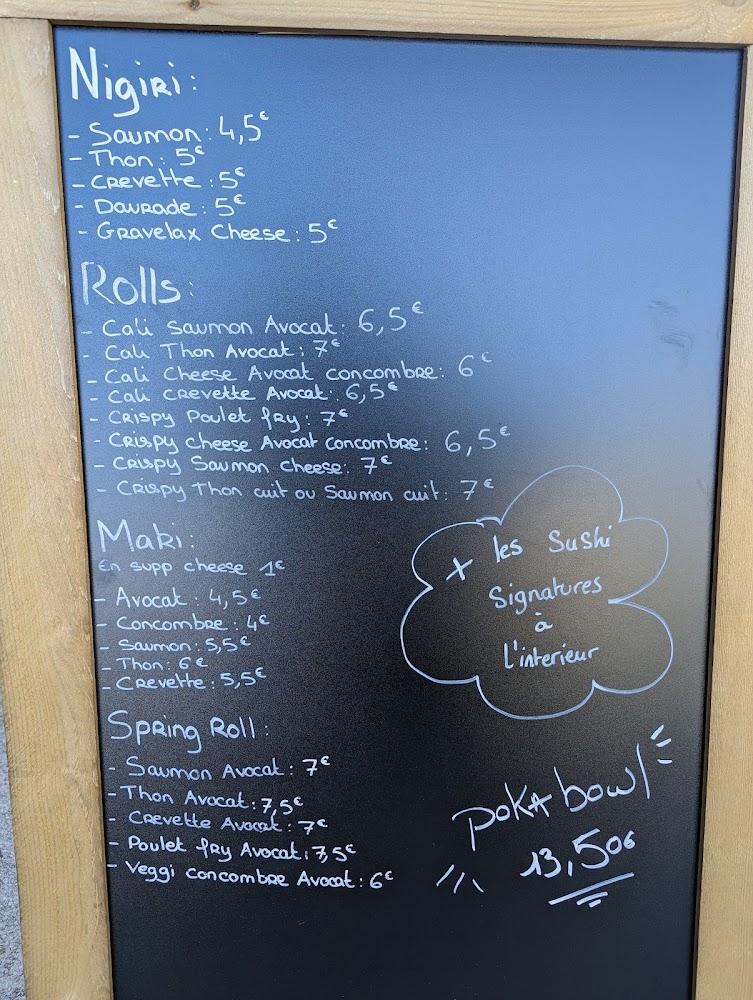 Nigiri:
- Saumon: 4,5€
- Thon: 5€
- Crevette: 5€
- Daurade: 5€
- Gravelax Cheese: 5€
Rolls:
- Cali Saumon Avocat: 6,5€
- Cali Thon Avocat: 7€
- Cali Cheese Avocat concombre: 6€
- Cali Crevette Avocat: 6,5€
- Crispy Poulet fry: 7€
- Crispy cheese Avocat concombre: 6,5€
- Crispy Saumon cheese: 7€
- Crispy Thon cuit ou Saumon cuit: 7€
Maki:
En supp cheese 1€
- Avocat: 4,5€
- Concombre: 4€
- Saumon: 5,5€
- Thon: 6€
- Crevette: 5,5€
+ les Sushi
Signatures
à
L'interieur
Spring Roll:
- Saumon Avocat: 7€
- Thon Avocat: 7,5€
- Crevette Avocat: 7€
- Poulet fry Avocat: 7,5€
- Veggi concombre Avocat: 6€
poka bowl
13,50€